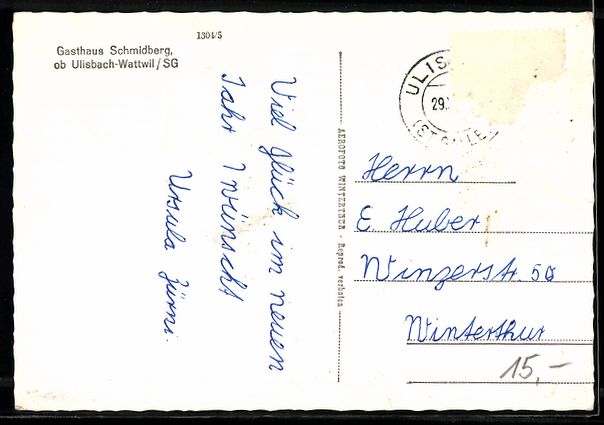 1304/5
Gasthaus Schmidberg,
ob Ulisbach-Wattwil/SG
Viel Glück im neuen
Jahr! Wünscht
Ursula Zürni.
AEROFOTO WINTERTHUR - Reprod. verboten
ULIS
29.
Herrn
E. Huber
Winzerstr. 50
Winterthur
15,-